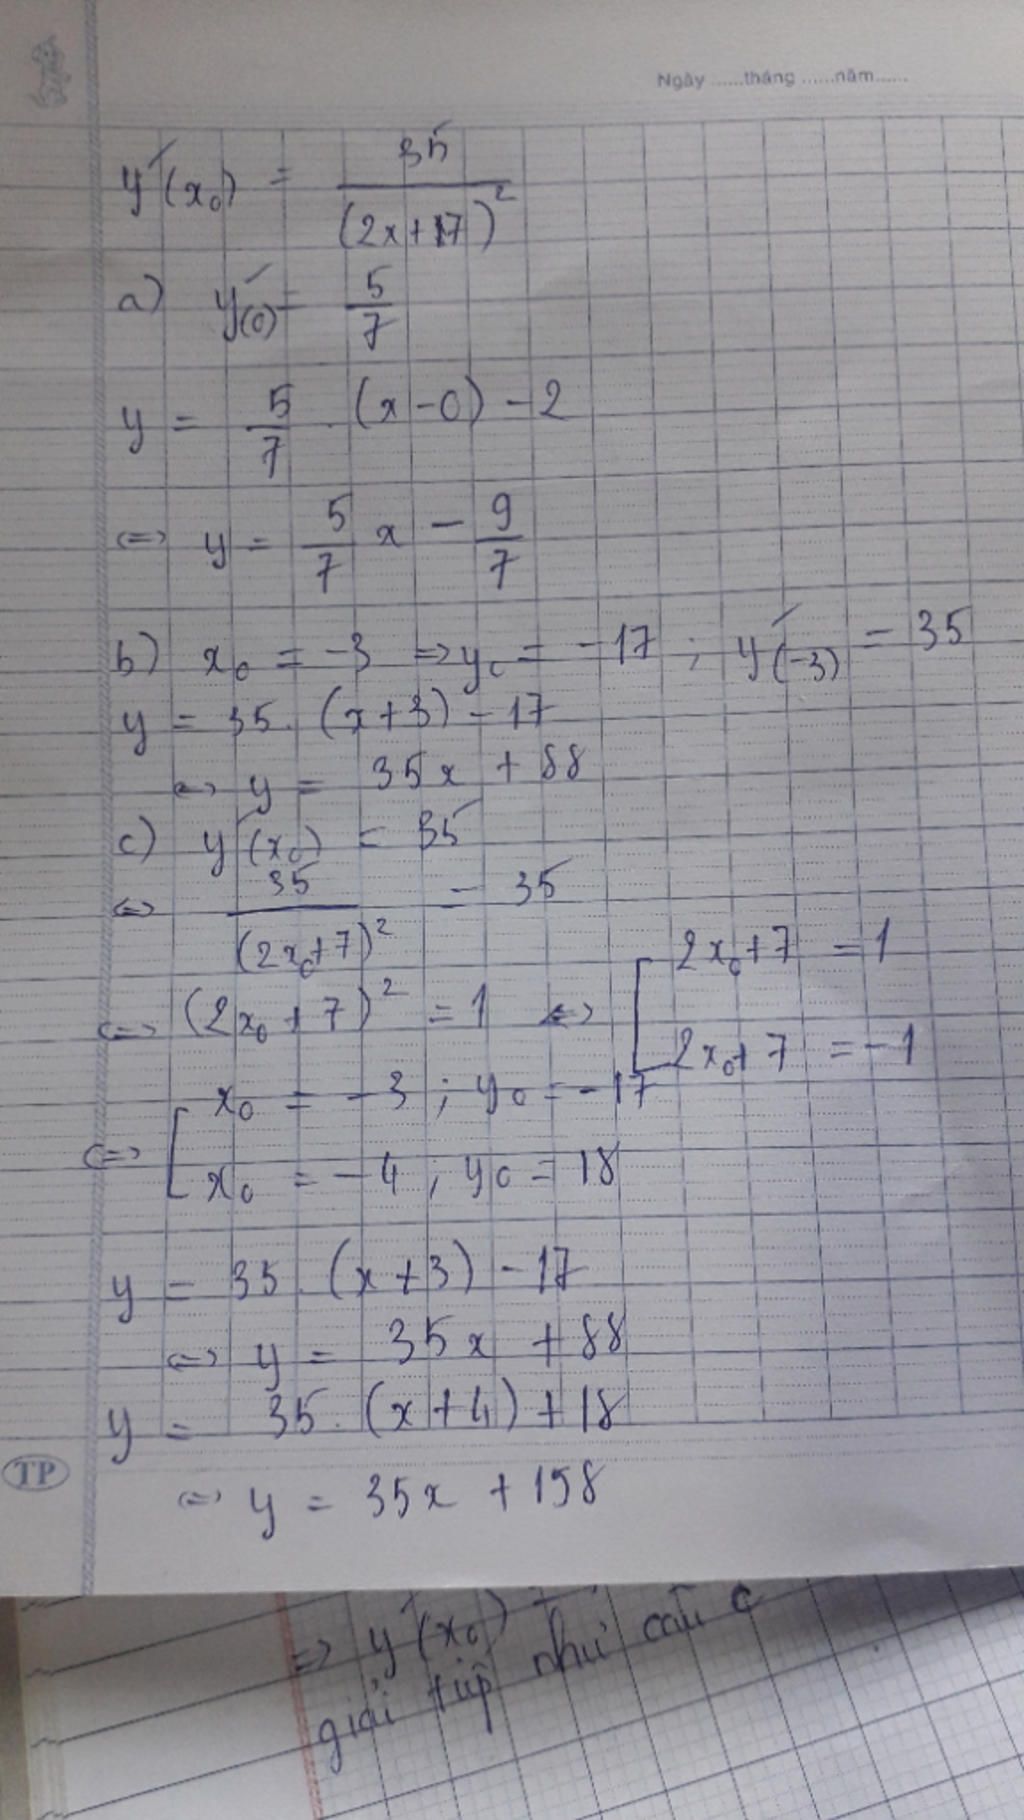 Ngày ......tháng ......năm......
y'(x₀) = 35/(2x+17)²
a) y'(0) = 5/7
y = 5/7 . (x-0) - 2
<=> y = 5/7 x - 9/7
b) x₀ = -3 => y₀ = -17 ; y'(-3) = 35
y = 35. (x+3) - 17
<=> y = 35x + 88
c) y'(x₀) = 35
<=> 35/(2x₀+7)² = 35
<=> (2x₀+7)² = 1 <=> [ 2x₀+7 = 1
2x₀+7 = -1
<=> [ x₀ = -3 ; y₀ = -17
x₀ = -4 ; y₀ = 18
y = 35. (x+3) - 17
<=> y = 35x + 88
y = 35. (x+4) + 18
<=> y = 35x + 158
TP
=> y'(x₀) =
giải tiếp như câu c